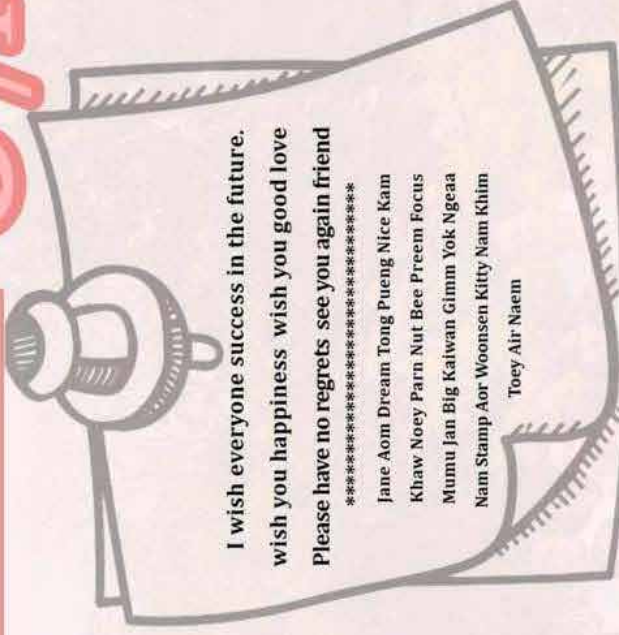 I wish everyone success in the future.
wish you happiness wish you good love
Please have no regrets see you again friend
************************************
Jane Aom Dream Tong Pueng Nice Kam
Khaw Noey Parn Nut Bee Preem Focus
Mumu Jan Big Kaiwan Gimm Yok Ngeaa
Nam Stamp Aor Woonsen Kitty Nam Khim
Toey Air Naem